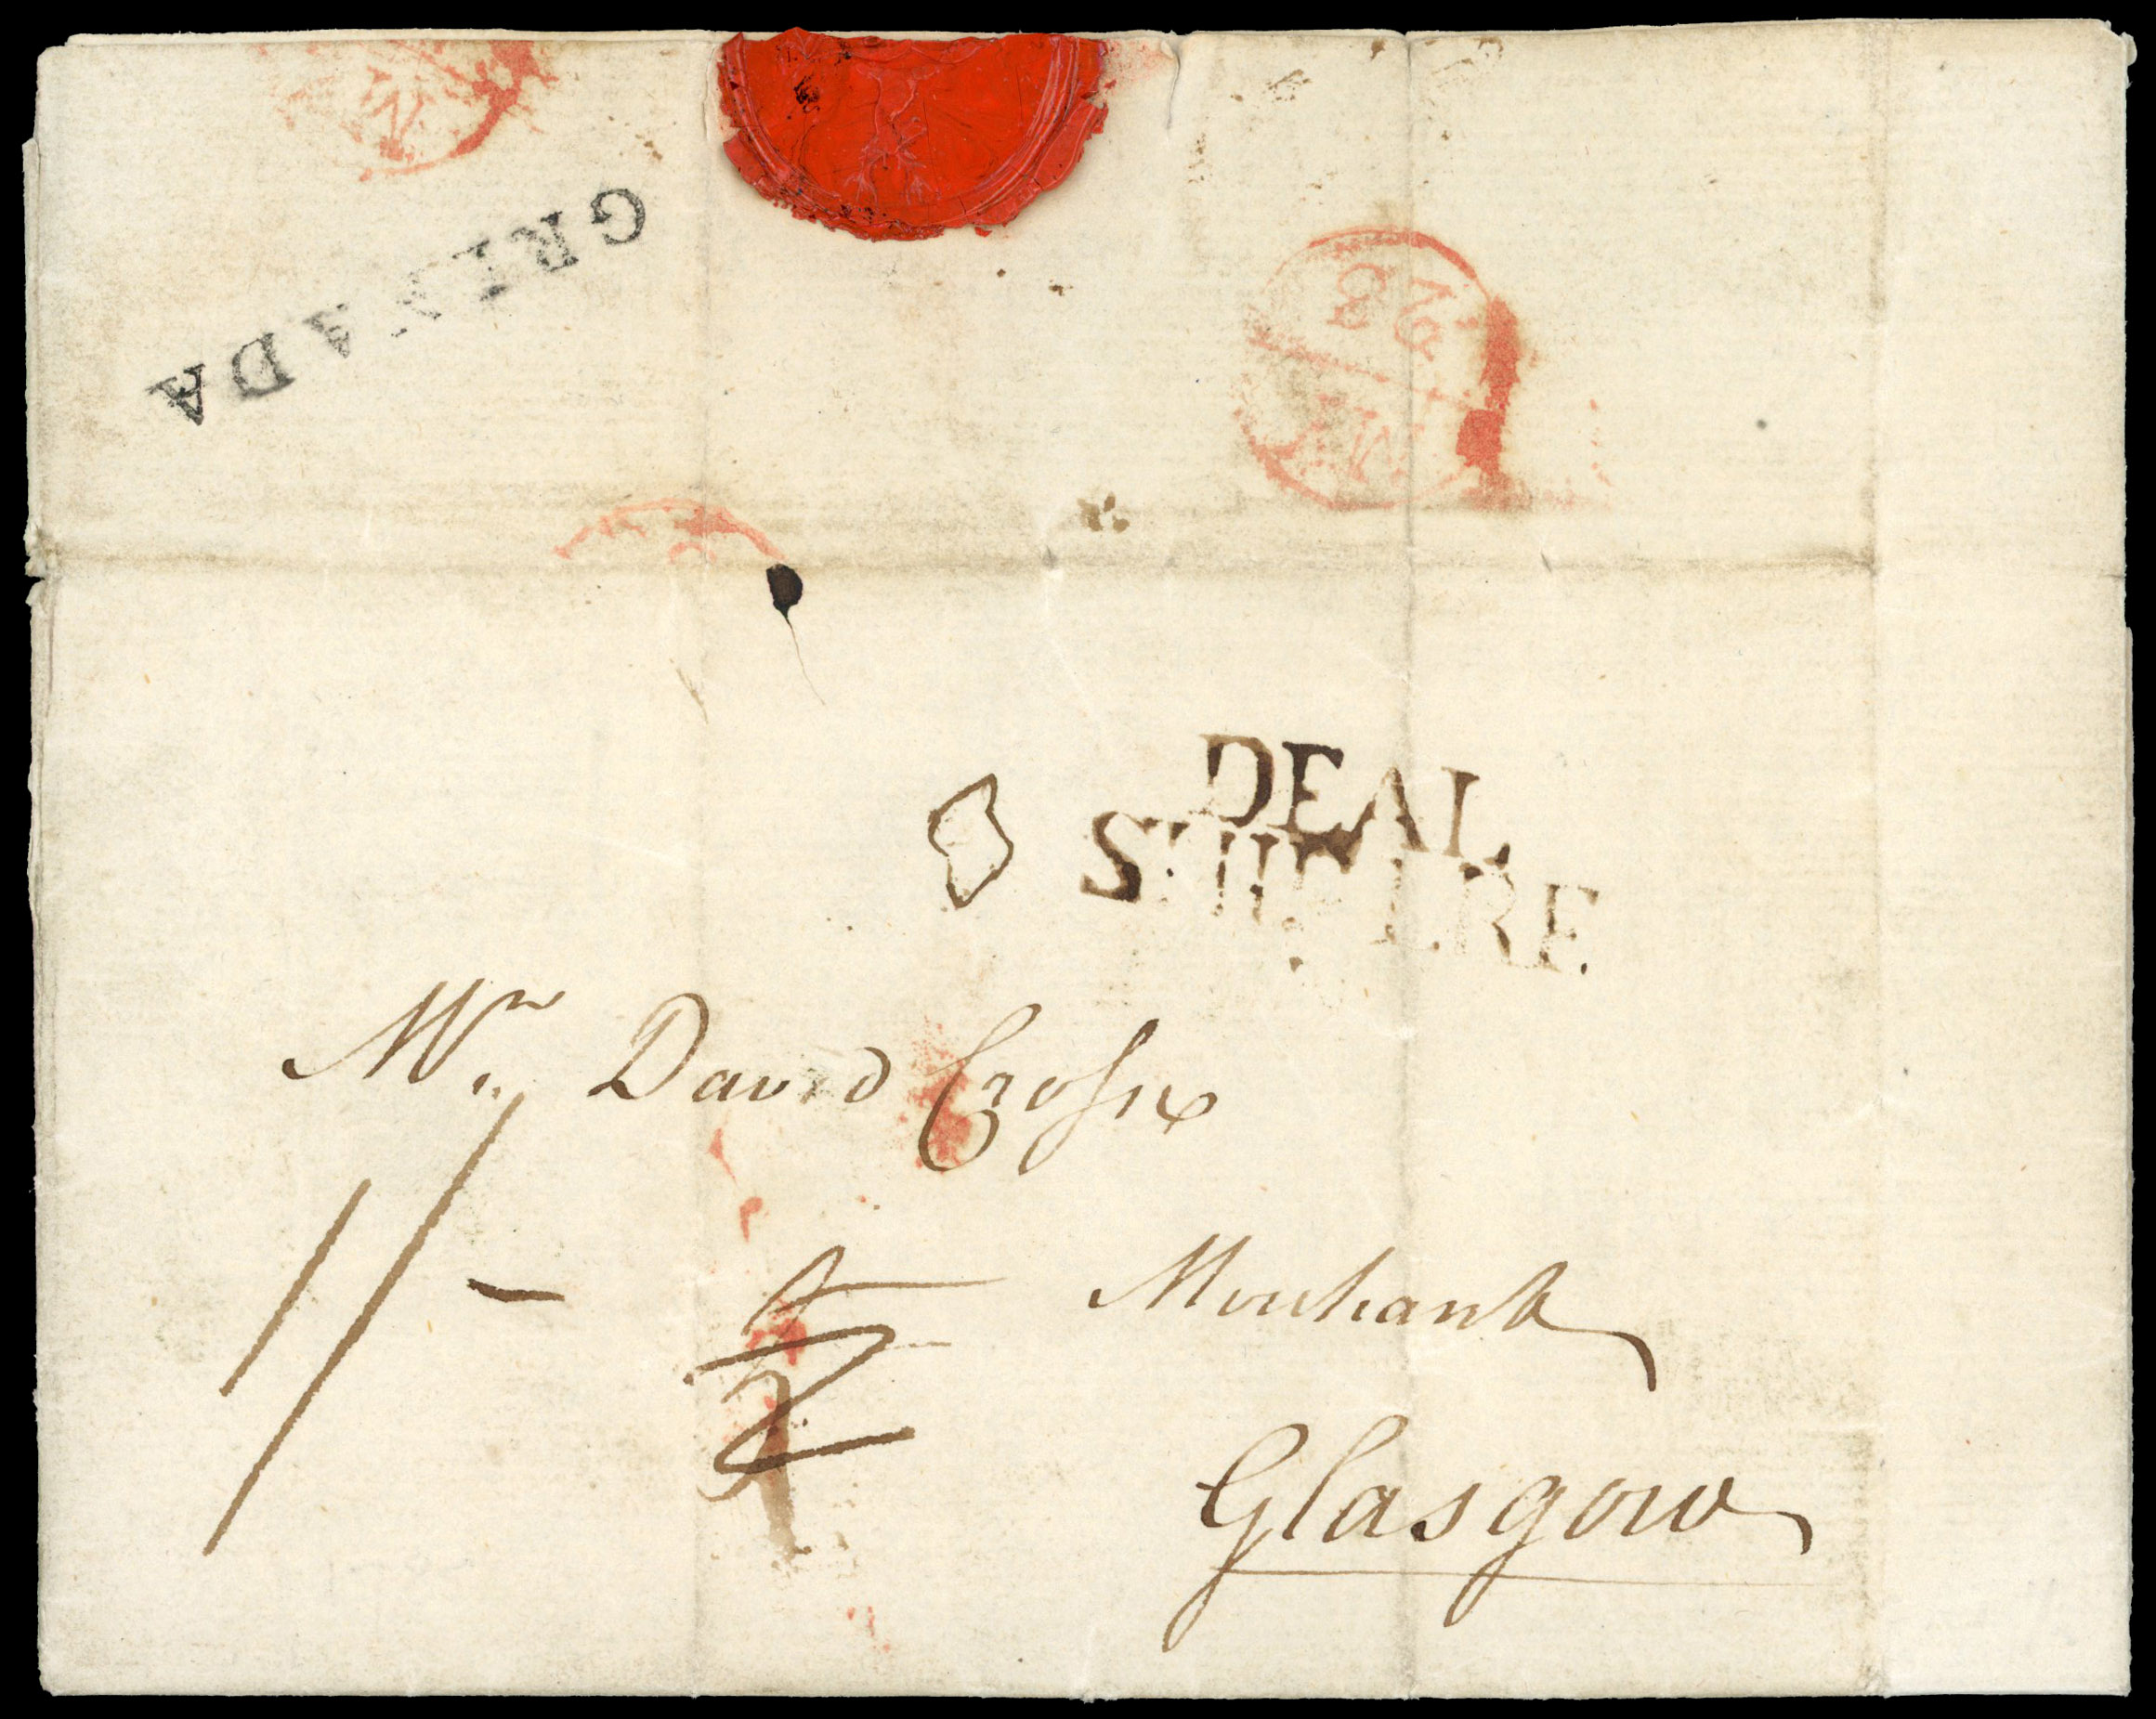 GRENADA
23
MY
DEAL
SHIP LRE
Mr. David Crosse
1/-
Merchant
Glasgow